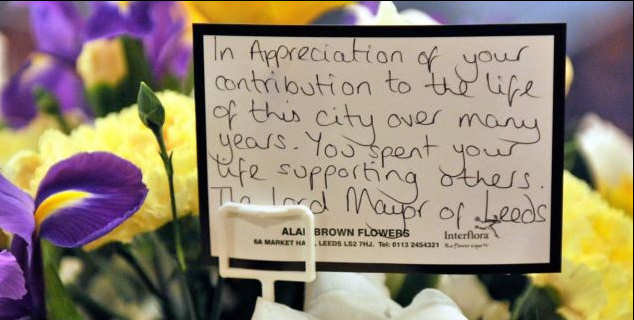 In Appreciation of your
contribution to the life
of this city over many
years. You spent your
life supporting others.
The Lord Mayor of Leeds
ALAN BROWN FLOWERS
6A MARKET HALL, LEEDS LS2 7HJ. Tel: 0113 2454321
Interflora
the flower experts